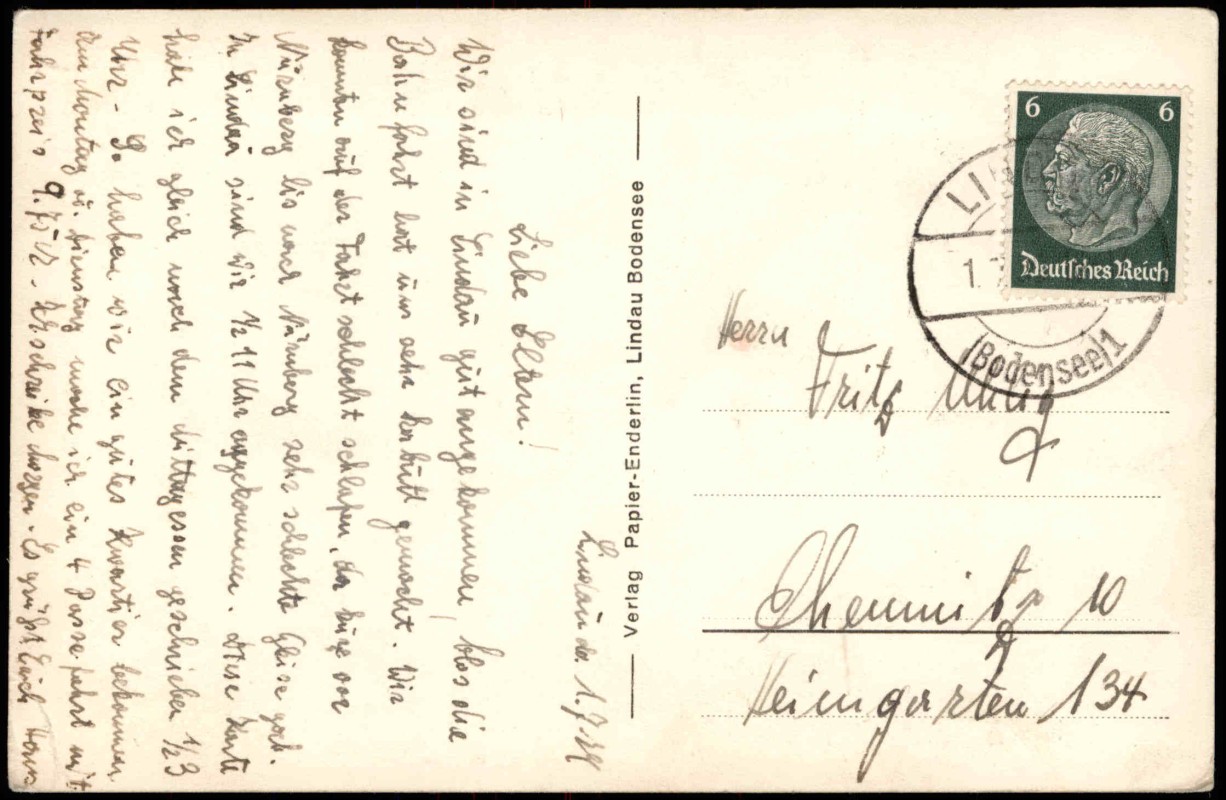 Lindau do. 1.7.34
Liebe Eltern!
Wir sind in Lindau gut angekommen, blos die
Bahnfahrt hat uns sehr kaputt gemacht. Wir
konnten auf der Fahrt schlecht schlafen, da kurz vor
Nürnberg bis nach Nürnberg sehr schlechte Gleise gab.
In Lindau sind wir ½ 11 Uhr angekommen. Diese Karte
habe ich gleich nach dem Mittagessen geschrieben ½3
Uhr - So haben wir ein gutes Kwartier bekommen.
Am Montag u. Dienstag mache ich ein 4 Pässefahrt mit.
Fahrpreis 9.75 M. Ich schreibe morgen. Es grüßt Euch Hans
Verlag Papier-Enderlin, Lindau Bodensee
6 6
Deutsches Reich
LINDAU
1.7
(Bodensee)1
Herrn
Fritz Uhlig
Chemnitz 10
Heimgarten 134